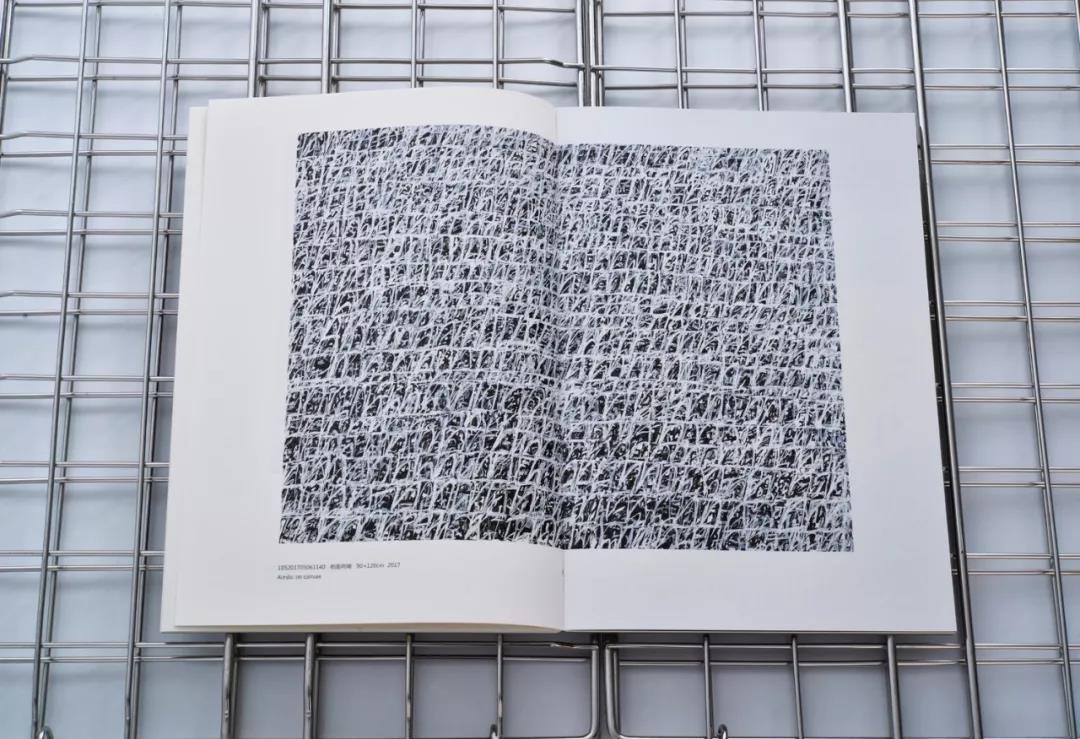 105201705061140 布面丙烯 90×120cm 2017
Acrylic on canvas